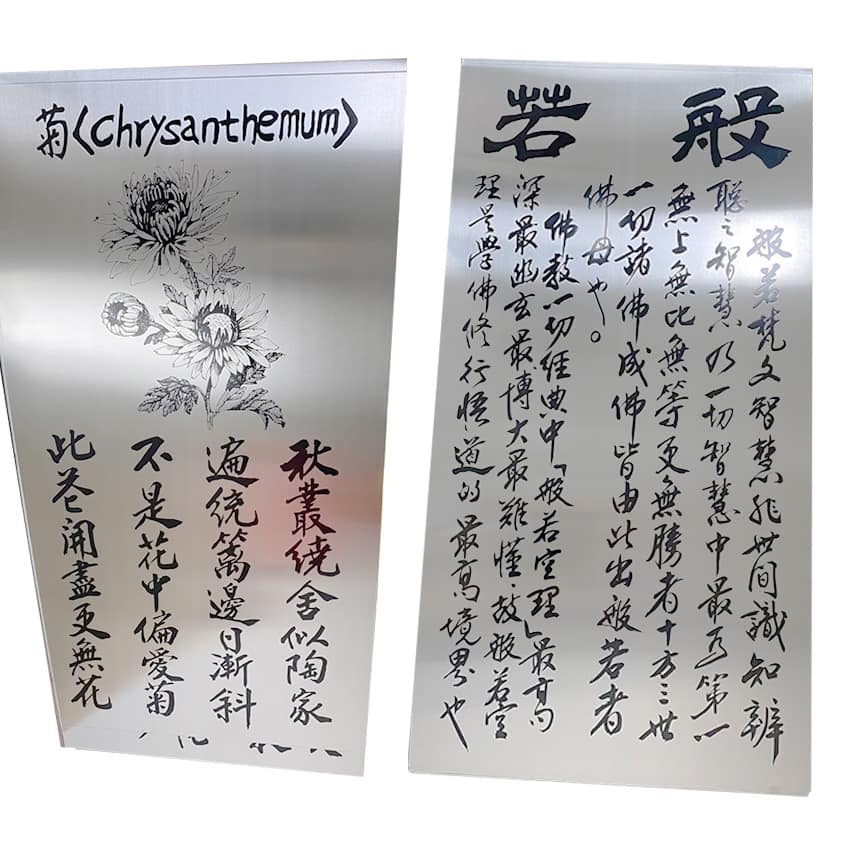 菊<Chrysanthemum>
秋叢繞舍似陶家
遍繞籬邊日漸斜
不是花中偏愛菊
此花開盡更無花
般若
般若梵文智慧非世間識知辨
聰之智慧乃一切智慧中最為第一
無上無比無等更無勝者十方三世
一切諸佛成佛皆由此出般若者
佛母也。
佛教一切經典中「般若空理」最高
深最幽玄最博大最難懂故般若空
理是學佛修行悟道的最高境界也